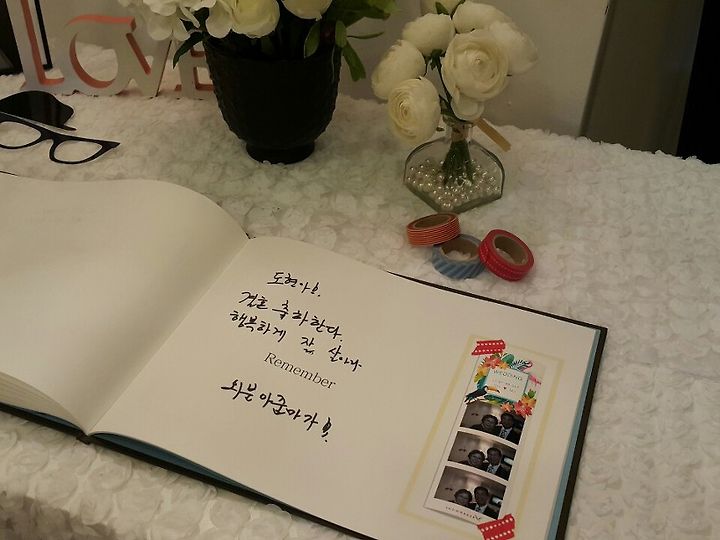 LOVE
도현아!
결혼 축하한다.
행복하게 잘 살아라.
Remember
아줌마가!
WEDDING